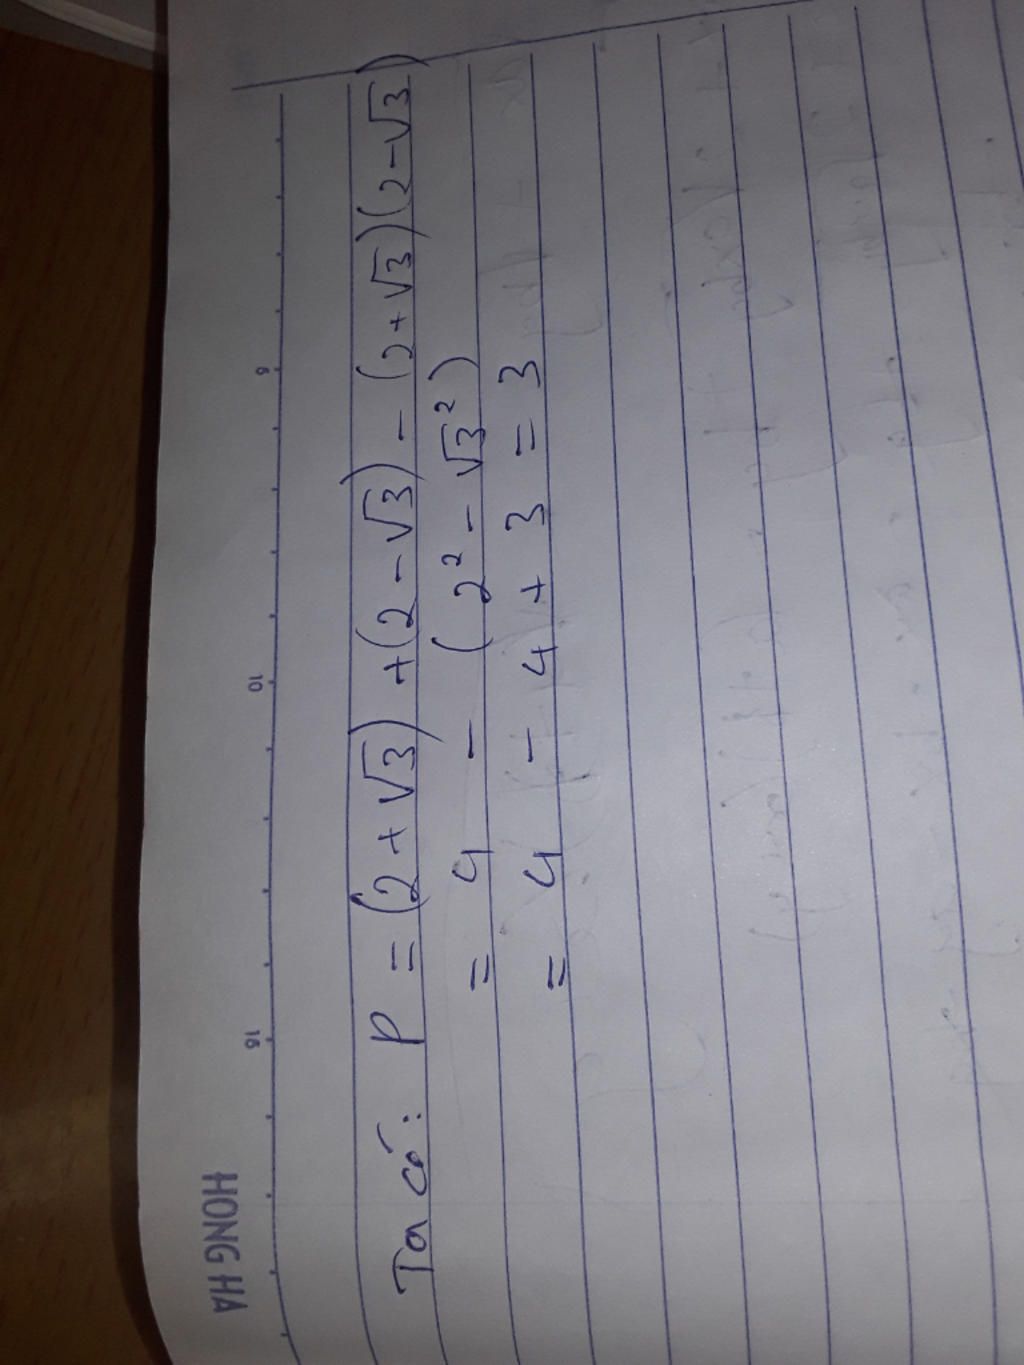 HONG HA
15
10
5
Ta có: P = (2 + √3) + (2 - √3) - (2 + √3)(2 - √3)
= 4 - (2² - √3²)
= 4 - 4 + 3 = 3